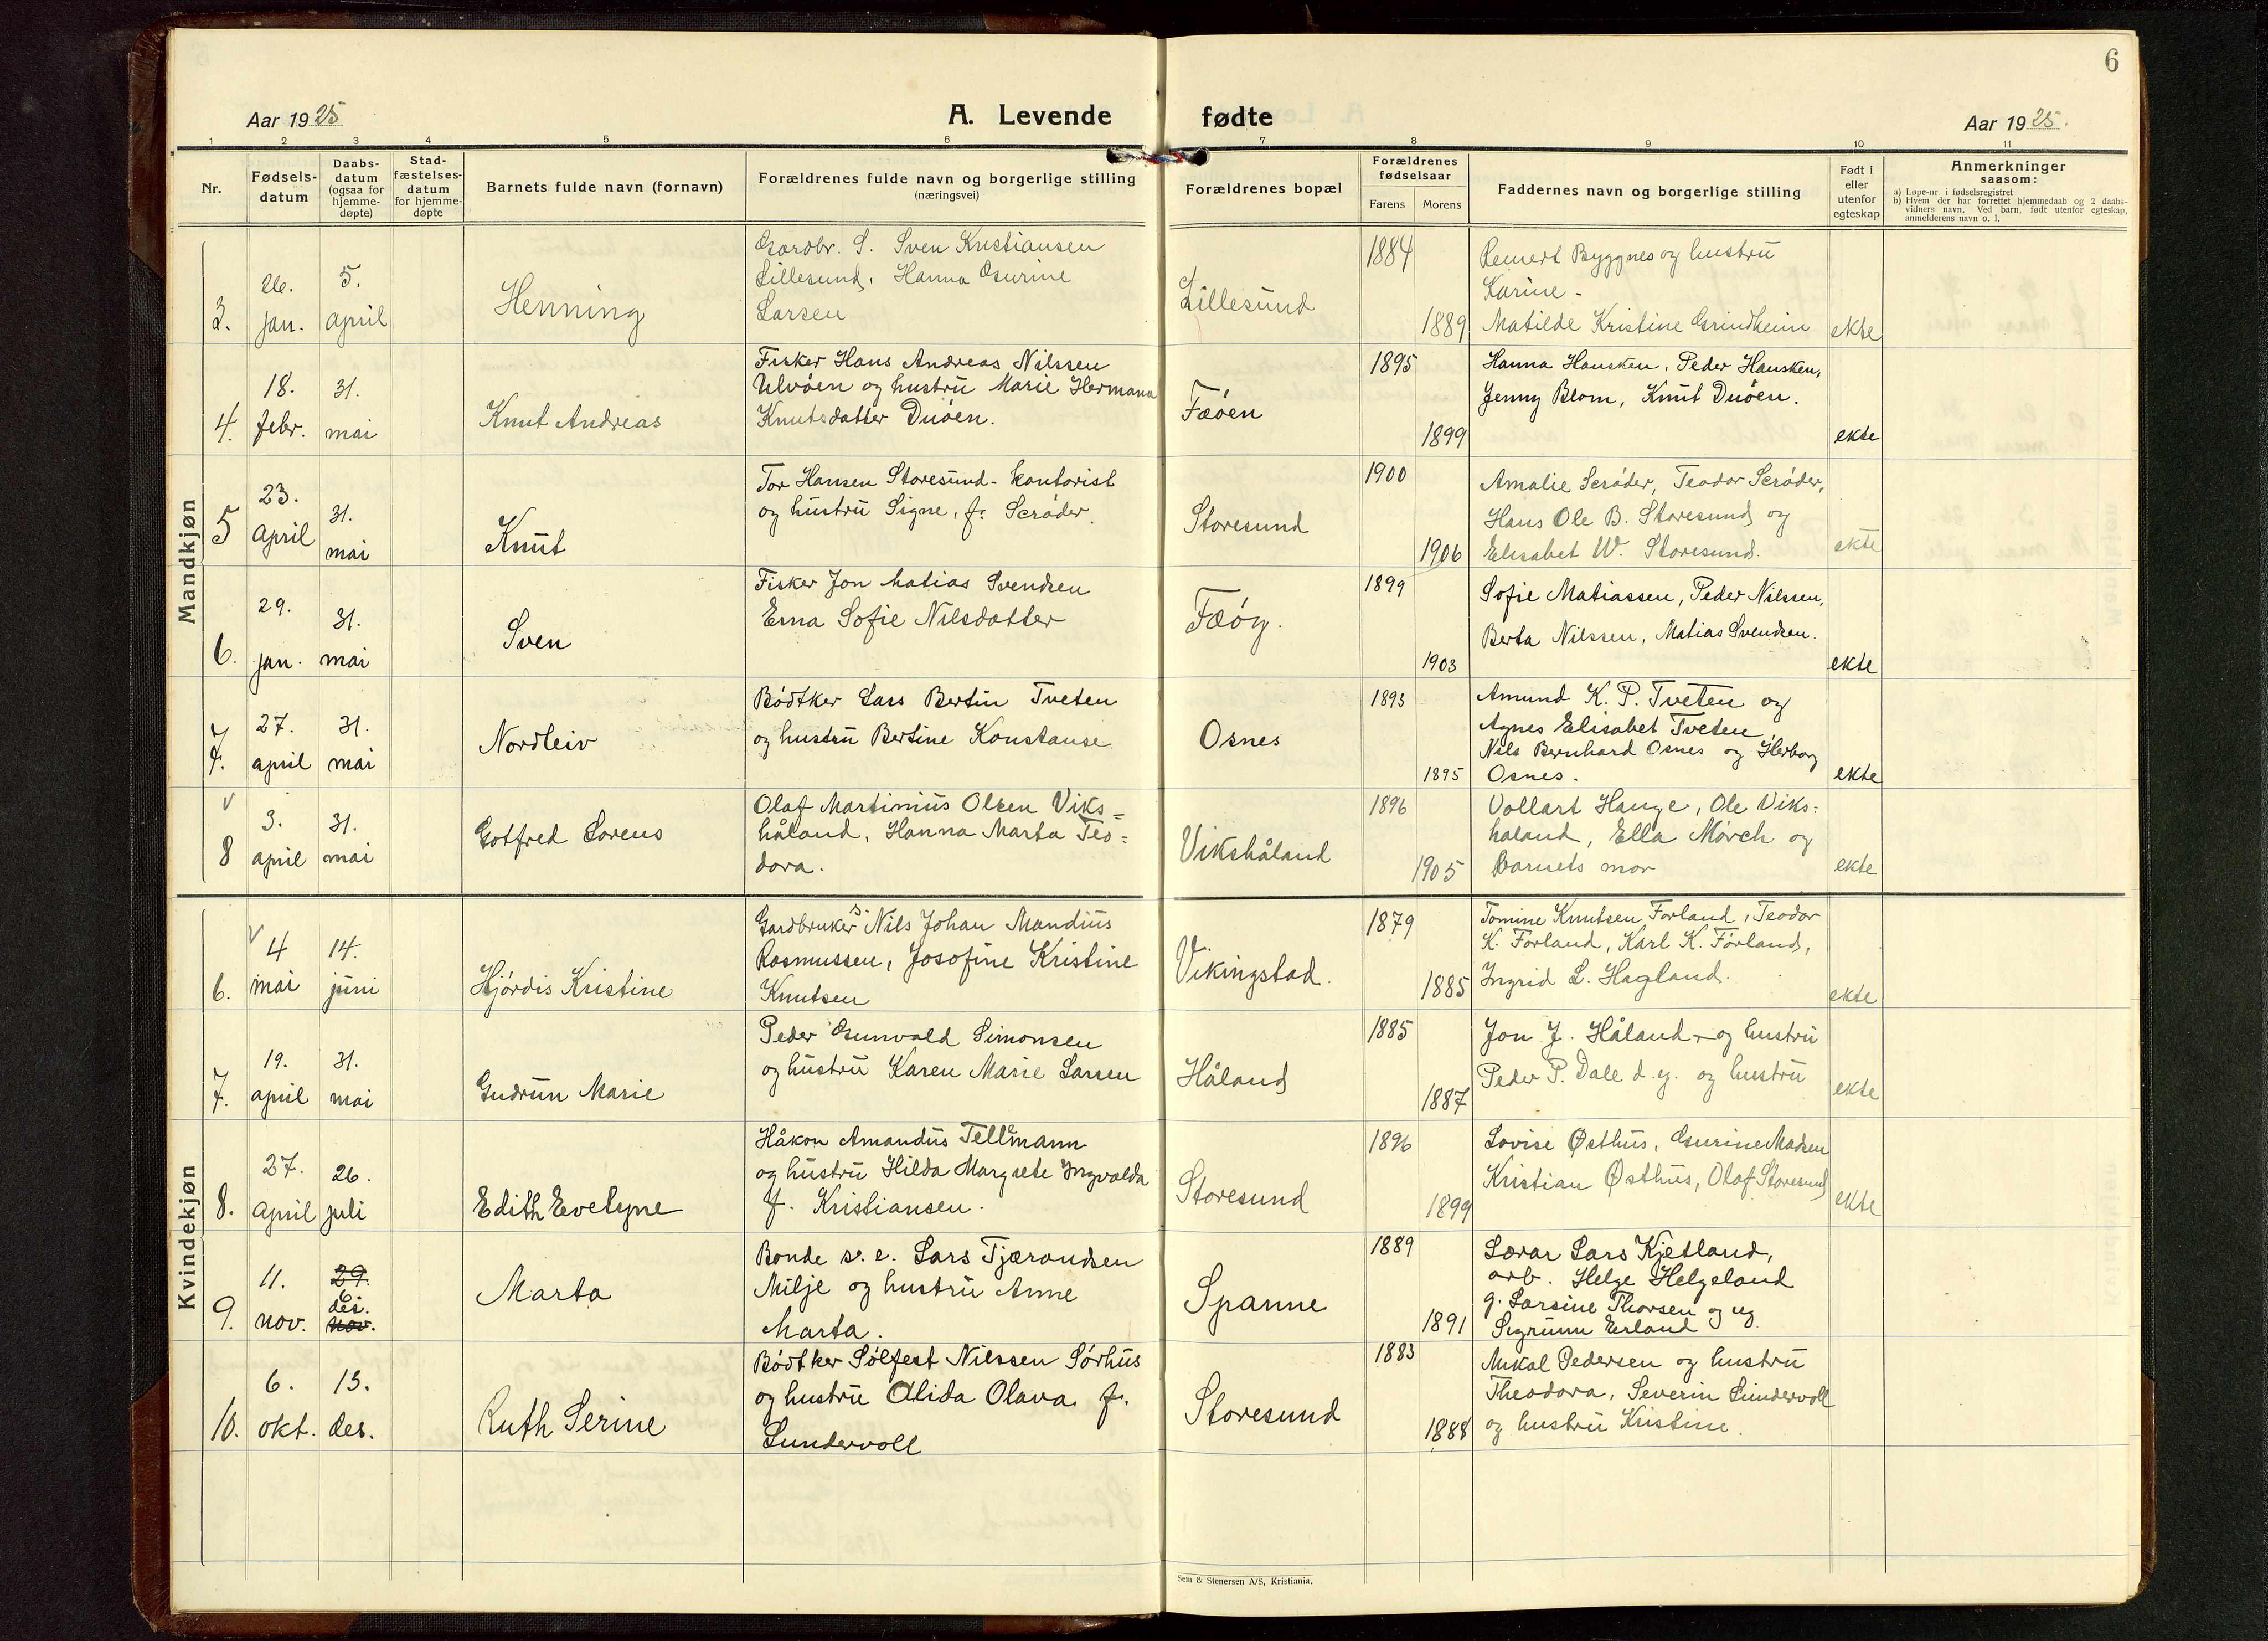 6
Aar 1925
A. Levende fødte
Aar 1925.
1 2 3 4 5 6 7 8 9 10 11
Nr.
Fødsels-
datum
Daabs-
datum
(ogsaa for
hjemme-
døpte)
Stad-
fæstelses-
datum
for hjemme-
døpte
Barnets fulde navn (fornavn)
Forældrenes fulde navn og borgerlige stilling
(næringsvei)
Forældrenes bopæl
Forældrenes
fødselsaar
Farens Morens
Faddernes navn og borgerlige stilling
Født i
eller
utenfor
egteskap
Anmerkninger
saasom:
a) Løpe-nr. i fødselsregistret
b) Hvem der har forrettet hjemmedaab og 2 daabs-
vidners navn. Ved barn, født utenfor egteskap,
anmelderens navn o. l.
Mandkjøn
3.
26.
jan.
5.
april
Henning
Gardbr. S. Sven Kristiansen
Lillesund, Hanna Gurine
Larsen
Lillesund
1884
1889
Reinert Byggnes og hustru
Karine -
Matilde Kristine Grindheim
ekte
4.
18.
febr.
31.
mai
Knut Andreas
Fisker Hans Andreas Nilssen
Ulvøen og hustru Marie Hermana
Knutsdatter Duøen.
Fæøen
1895
1899
Hanna Hansken, Peder Hansken,
Jenny Blom, Knut Duøen.
ekte
5
23.
april
31.
mai
Knut
Tor Hansen Storesund - kontorist
og hustru Signe, f. Scrøder.
Storesund
1900
1906
Amalie Scrøder, Teodor Scrøder,
Hans Ole B. Storesund og
Elisabet W. Storesund.
ekte
6.
29.
jan.
31.
mai
Sven
Fisker Jon Matias Svendsen
Erna Sofie Nilsdatter
Fæøy.
1899
1903
Sofie Matiassen, Peder Nilssen,
Berta Nilssen, Matias Svendsen.
ekte
7.
27.
april
31.
mai
Nordleiv
Bødtker Lars Bertin Tveten
og hustru Bertine Konstanse
Osnes
1893
1895
Amund K. P. Tveten og
Agnes Elisabet Tveten,
Nils Bernhard Osnes og Herborg
Osnes.
ekte
8
3.
april
31.
mai
Gotfred Lorens
Olaf Martinius Olsen Viks=
håland, Hanna Marta Teo=
dora.
Vikshåland
1896
1905
Vollart Hauge, Ole Viks=
haland, Ella Mørch og
Barnets mor
ekte
Kvindekjøn
6.
4
mai
14.
juni
Hjørdis Kristine
Gardbruker s. Nils Johan Mandius
Rasmussen, Josofine Kristine
Knutsen
Vikingstad.
1879
1885
Tomine Knutsen Førland, Teodor
K. Førland, Karl K. Førland,
Ingrid L. Hagland.
ekte
7.
19.
april
31.
mai
Gudrun Marie
Peder Gunvald Simonsen
og hustru Karen Marie Larsen
Håland
1885
1887
Jon J. Håland og hustru
Peder P. Dale d. y. og hustru
ekte
8.
27.
april
26.
juli
Edith Evelyne
Håkon Amandus Tellemann
og hustru Hilda Margrete Ingvalda
f. Kristiansen.
Storesund
1896
1899
Lovise Østhus, Gurine Madsen
Kristian Østhus, Olaf Storesund
ekte
9.
11.
nov.
29.
6
des.
nov.
Marta
Bonde s. e. Lars Tjærandsen
Milje og hustru Anne
Marta.
Spanne
1889
1891
Lærar Lars Kjetland,
arb. Helge Helgeland
g. Larsine Thorsen og ug
Sigrunn Erland
10.
6.
okt.
13.
des.
Ruth Serine
Bødtker Sølfest Nilssen Sørhus
og hustru Alida Olava f.
Sundervoll
Storesund
1883
1888
Mikal Pedersen og hustru
Theodora, Severin Sundervoll
og hustru Kristine.
Sem & Stenersen A/S, Kristiania.